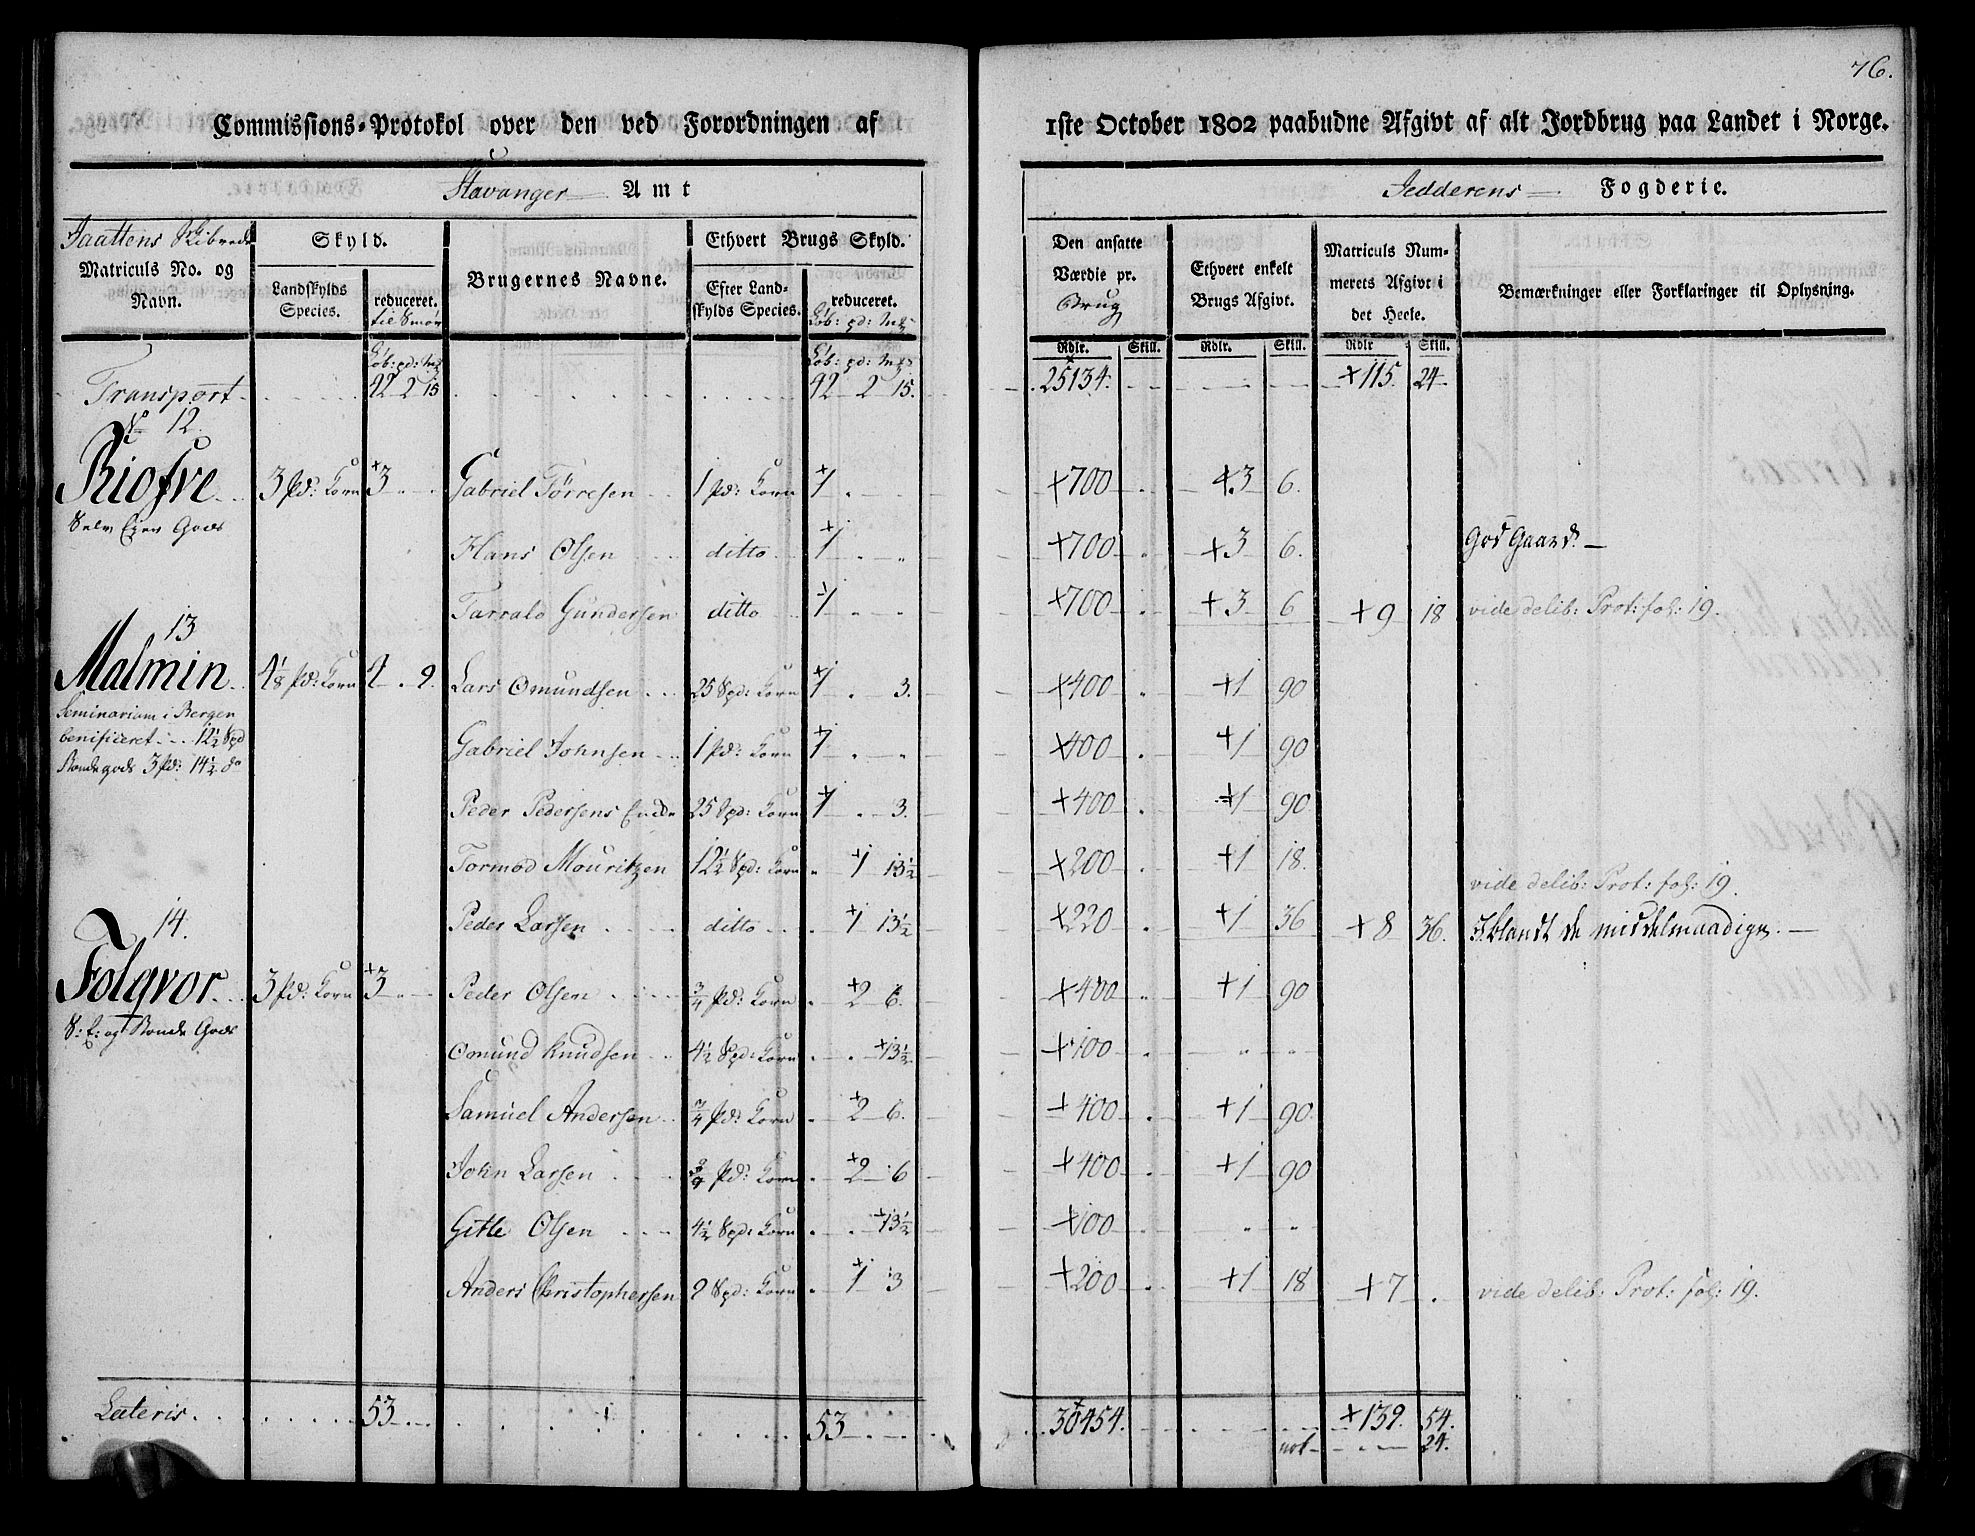 76.
Commissions-Protokol over den ved Forordningen af 1ste October 1802 paabudne Afgivt af alt Jordbrug paa Landet i Norge.
Stavanger Amt Jedderens Fogderie.
Jaattens Skibrede
Matriculs No. og Navn.
Skyld.
Landskylds Species.
reduceret. til Smør
Brugernes Navne.
Ethvert Brugs Skyld.
Efter Landskylds Species.
reduceret.
Løb: pd: mk
Den ansatte Værdie pr. Brug
Ethvert enkelt Brugs Afgivt.
Matriculs Nummerets Afgivt i det Heele.
Bemærkninger eller Forklaringer til Oplysning.
Løb: pd: mk Løb: pd: mk Rdlr. Skill. Rdlr. Skill. Rdlr Skill.
Transport 42 2 15 42 2 15. 25134. +115. 24
No 12.
Riosve 3 pd: Korn +3 Gabriel Tørresen 1 pd: Korn +1 +700 +3 6.
Selv Eyer Gods
Hans Olsen ditto +1 +700 +3 6. God Gaard. —
Tarrald Gundersen ditto +1 +700 +3 6 +9 18 vide delib: Prot: fol: 19.
13
Malmin 4 1/8 pd: Korn 4 . 9. Lars Omundsen 25 Spd: Korn +1 . 3. +400 +1 90
Seminarium i Bergen
benificeret 12½ Spd
Bondegods 3 pd: 14½ do
Gabriel Johnsen 1 pd: Korn +1 +400 +1 90
Peder Pedersens Encke 25 Spd: Korn +1 . 3. +400 +1 90.
Tormod Mouritzen 12½ Spd: Korn +1 13½ +200 +1 18.
vide delib: Prot: fol: 19.
Peder Larsen ditto +1 13½ +220 +1 36 +8 36. Iblandt de middelmaadige. —
14.
Folqvor 3 pd: Korn +3 Peder Olsen ¾ pd: Korn +2 6. +400 +1 90
S: E: og Bonde Gods
Omund Knudsen 4½ Spd: Korn +13½ +100 " "
Samuel Andersen ¾ pd: Korn +2 6. +400 +1 90.
John Larsen ¾ pd: Korn +2 6 +400 +1 90
Gitle Olsen 4½ Spd: Korn +13½ +100 " "
Anders Christophersen 9 Spd: Korn +1 3 +200 +1 18 +7 . vide delib: Prot: fol: 19.
Lateris 53 53 30454. +139. 54.
not 24.